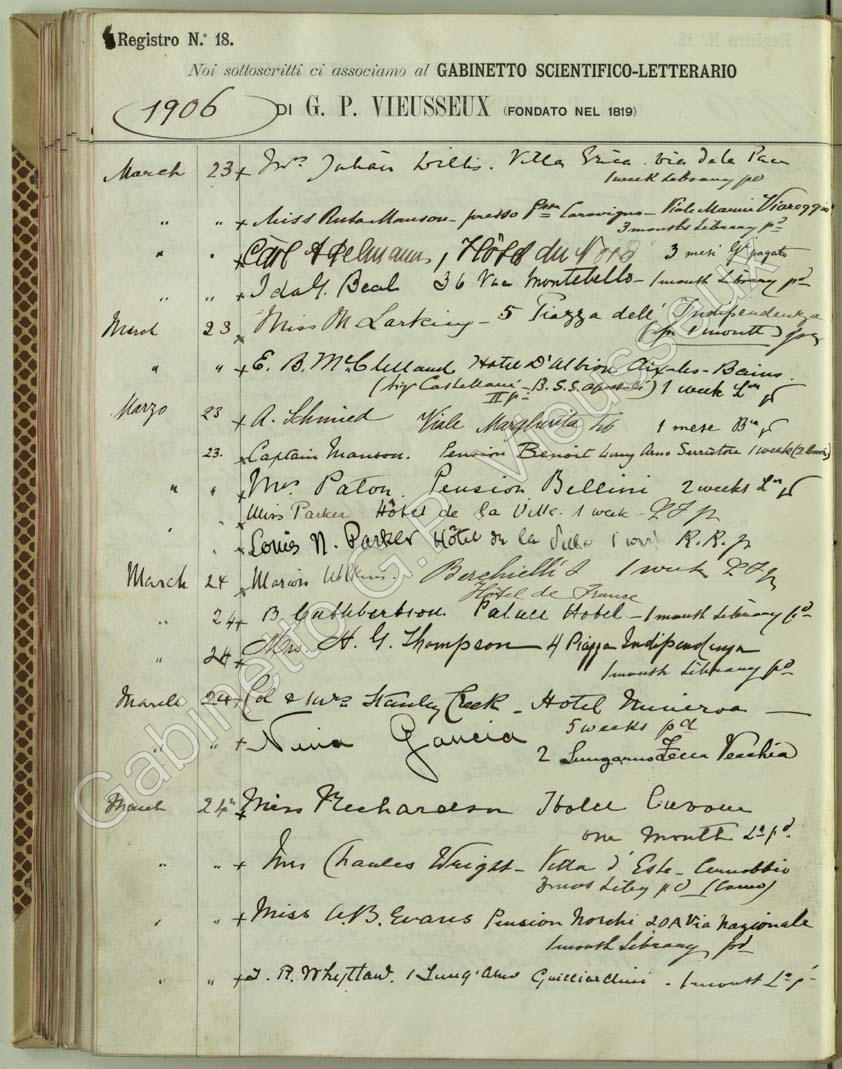 Registro N.° 18.
Noi sottoscritti ci associamo al GABINETTO SCIENTIFICO-LETTERARIO
1906 DI G. P. VIEUSSEUX (FONDATO NEL 1819)
March 23 + Mrs Julian Willis. Villa Erica. via
1 week Library pd
" " + Miss Manson - presso - Viale Marini Viareggio
3 months Library pd
" " + Carl Adelmann, Hôtel du Nord 3 mesi pagato
" " + Ida G. Beal 36 Via Montebello - 1 month Library pd
March 23 Miss M Larking - 5 Piazza dell' Indipendenza
(for 1 month)
" " + E. B. McClelland Hotel D'Albion Aix-les-Bains.
(Sigr Castellani - B.S.S. ) 1 week
Marzo 23 + A. Schmied Viale Margherita 1 mese
23. Captain Manson. Pension Benoit Lung Arno Serristori 1 week
" " + Mrs Paton. Pension Bellini 2 weeks
Miss Parker Hôtel de la Ville. 1 week
" " + Louis N. Parker Hôtel de la Ville 1 R.R. p
March 24 Marion Berchielli's 1 week
Hôtel de France
" 24 + B. Cuthbertson. Palace Hotel - 1 month Library pd
" 24 + Mrs. H. G. Thompson - 4 Piazza Indipendenza
1 month Library pd
March 24 + Col & Mrs Stanley Creek - Hotel Minerva -
5 weeks pd
" " + Nina Garcia
2 Lungarno Zecca Vecchia
March 24 + Miss Richardson Hotel Cavour
one month
" " + Mrs Charles Wright - Villa d'Este - Cernobbio
3 mos pd (Como)
" " + Miss A.B. Evans Pension Norchi 20A Via Nazionale
1 month Library pd
" " + Whyttaw. 1 Lung'Arno Guicciardini - 1 month
Gabinetto G.P. Vieusseux